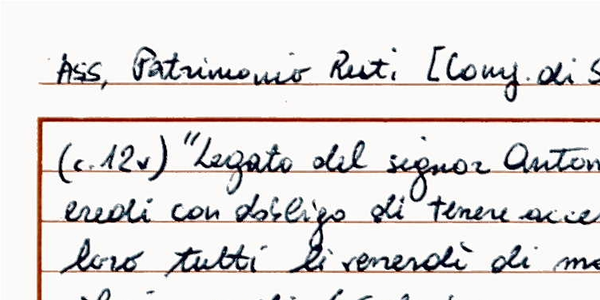 ASS, Patrimonio Resti [Cong. di S
(c.12v) "Legato del signor Anton
eredi con dobligo di tenere acce
loro tutti li venerdì di ma